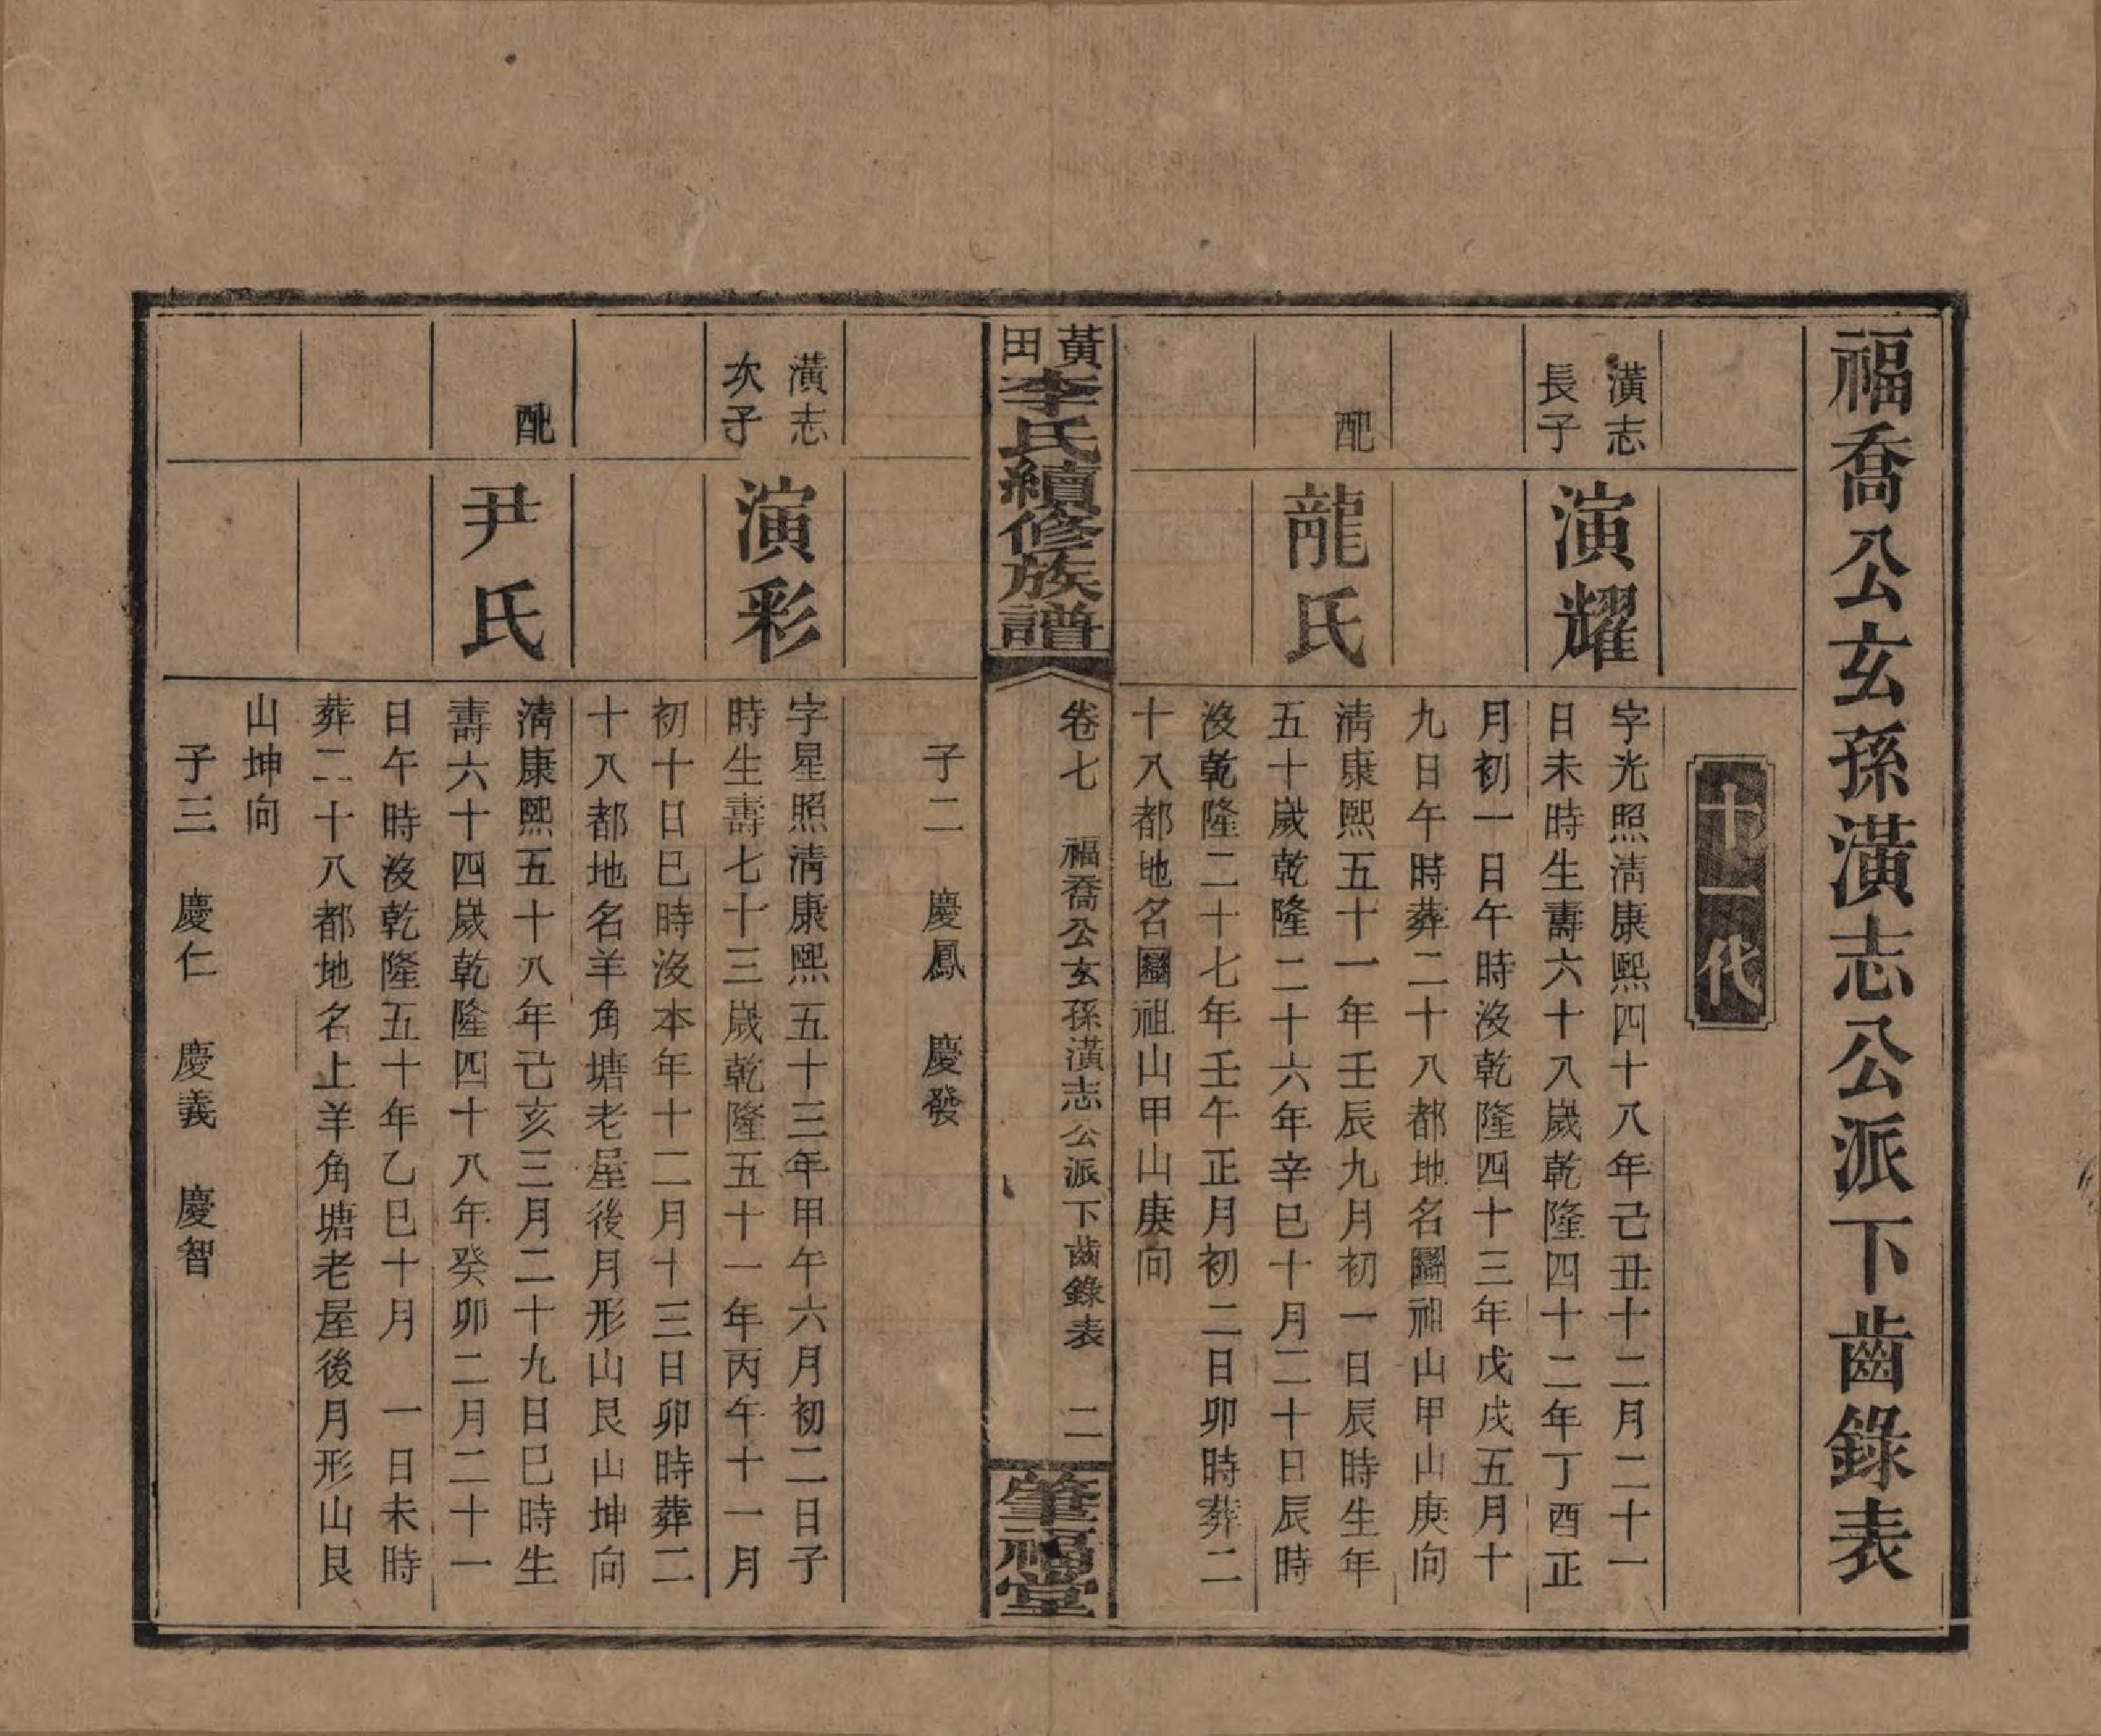 福喬公玄孫潢志公派下齒錄表
十一代
潢志
長子
演耀
字光照淸康熙四十八年己丑十二月二十一
日未時生壽六十八歲乾隆四十二年丁酉正
月初一日午時沒乾隆四十三年戊戌五月十
九日午時葬二十八都地名圞祖山甲山庚向
配
龍氏
淸康熙五十一年壬辰九月初一日辰時生年
五十歲乾隆二十六年辛巳十月二十日辰時
沒乾隆二十七年壬午正月初二日卯時葬二
十八都地名圞祖山甲山庚向
黃田李氏續修族譜
卷七 福喬公玄孫潢志公派下齒錄表 二
肇福堂
子二 慶鳳 慶發
潢志
次子
演彩
字星照淸康熙五十三年甲午六月初二日子
時生壽七十三歲乾隆五十一年丙午十一月
初十日巳時沒本年十二月十三日卯時葬二
十八都地名羊角塘老屋後月形山艮山坤向
配
尹氏
淸康熙五十八年己亥三月二十九日巳時生
壽六十四歲乾隆四十八年癸卯二月二十一
日午時沒乾隆五十年乙巳十月 一日未時
葬二十八都地名上羊角塘老屋後月形山艮
山坤向
子三 慶仁 慶義 慶智